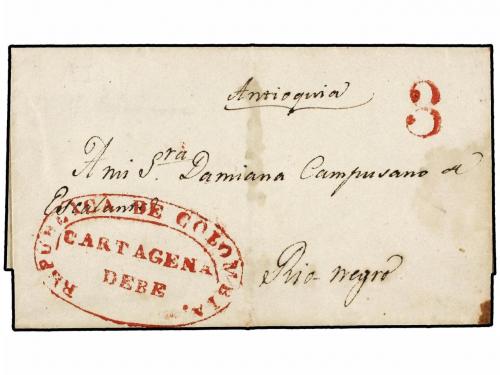 Antioquia
3
A mi Sra. Damiana Campusano de
Escalante
REPUBLICA DE COLOMBIA.
CARTAGENA
DEBE
Rio negro